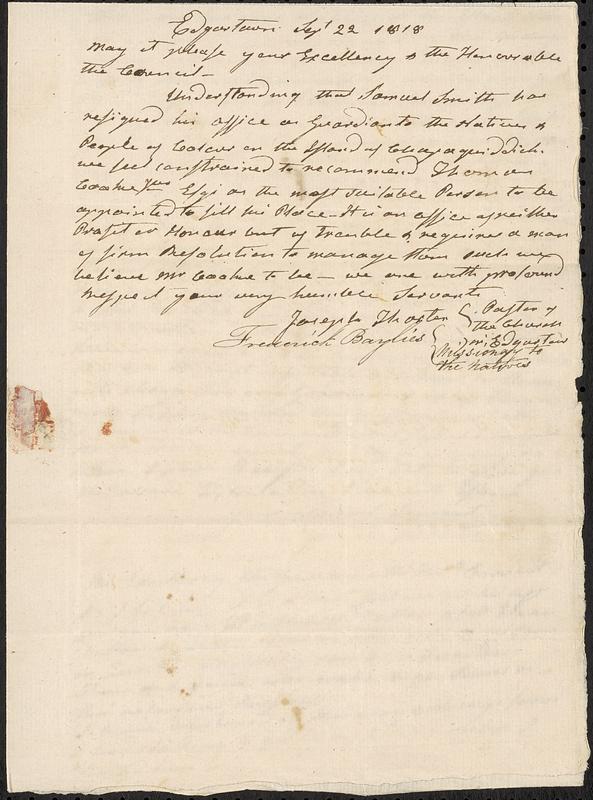 Edgartown Sept 22 1818
May it please your Excellency & the Honourable
the Council—
Understanding that Samuel Smith has
resigned his office as Guardian to the Natives &
People of Colour on the Island of Chapaquiddick.
we feel constrained to recommend Thomas
Cooke Junr Esqr as the most suitable Person to be
appointed to fill his Place— It is an office of neither
Profit or Honour but of trouble & requires a man
of firm Resolution to manage them such we
believe Mr Cooke to be— we are with profound
Respect your very humble Servants
Joseph Thaxter { Pastor of
the Church
in Edgartown
Frederick Baylies { Missionary to
the Natives